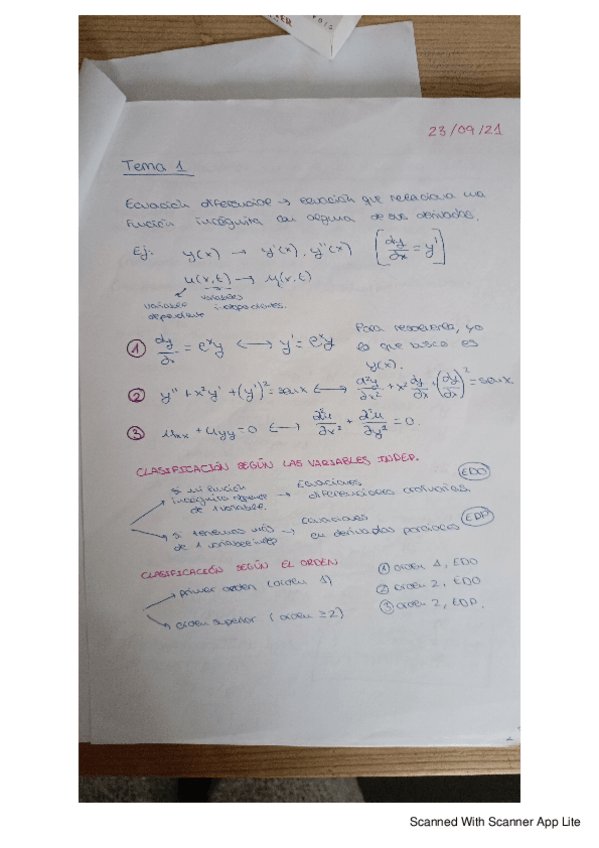 23/09/21
Tema 1
Ecuación diferencial → ecuación que relaciona una
función incógnita con alguna de sus derivadas.
Ej: y(x) → y'(x), y''(x) [dy/dx = y']
u(x,t) → u'(x,t)
variable dependiente variables independientes.
① dy/dx = e^x y ⟷ y' = e^x y Para resolverla, yo
lo que busco es
y(x).
② y'' + x²y' + (y')² = sen x ⟷ d²y/dx² + x² dy/dx + (dy/dx)² = sen x
③ uxx + uyy = 0 ⟷ ∂²u/∂x² + ∂²u/∂y² = 0.
CLASIFICACIÓN SEGÚN LAS VARIABLES INDEP.
si mi función incógnita depende de 1 variable. → Ecuaciones diferenciales ordinarias. EDO
si tenemos más de 1 variable indep → Ecuaciones en derivadas parciales EDP
CLASIFICACIÓN SEGÚN EL ORDEN
primer orden (orden 1)
orden superior (orden ≥ 2)
① orden 1, EDO
② orden 2, EDO
③ orden 2, EDP.
Scanned With Scanner App Lite